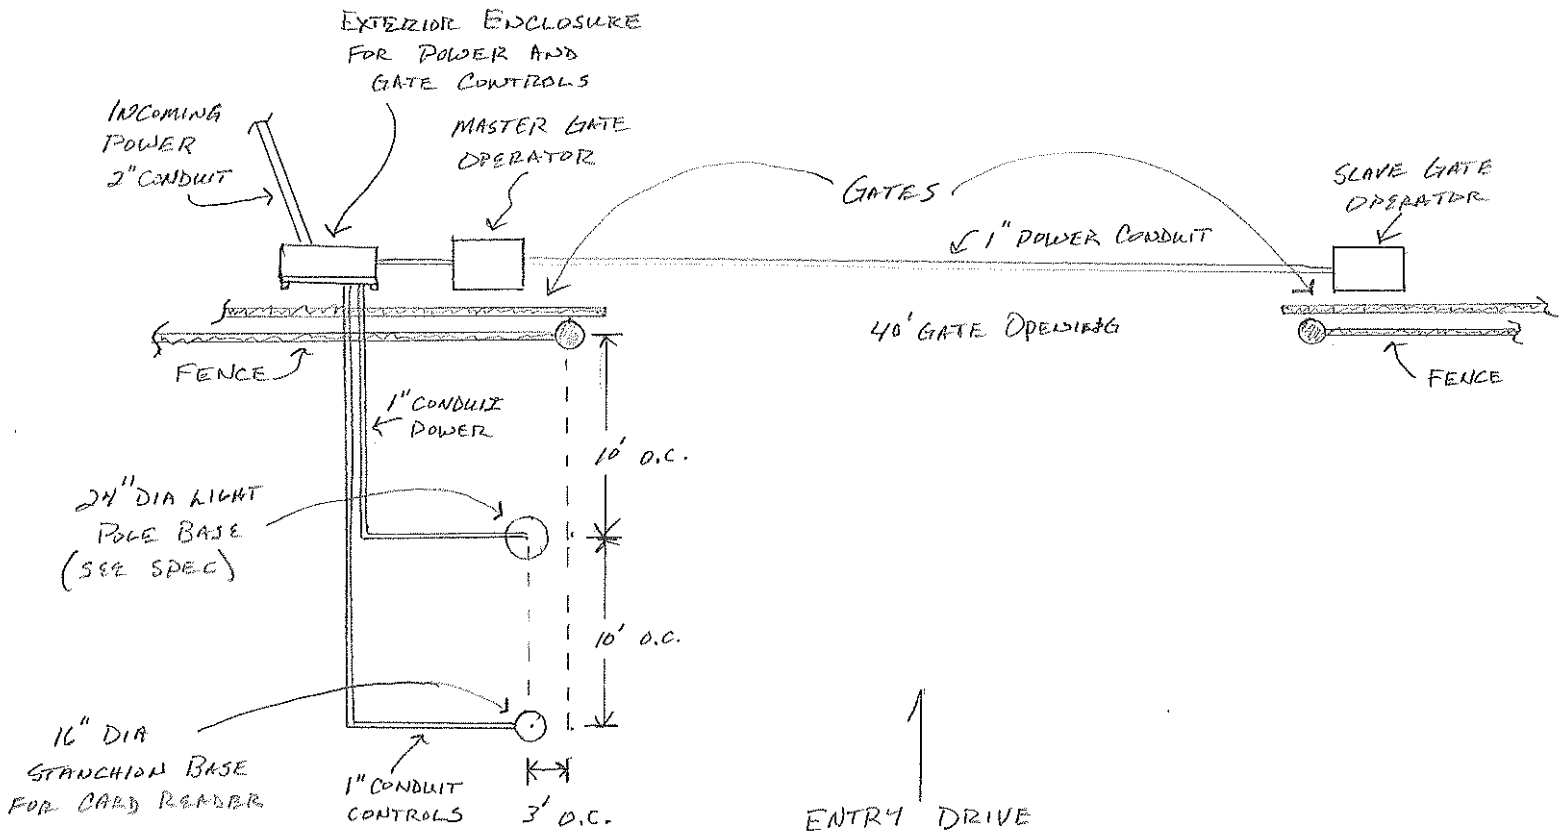 EXTERIOR ENCLOSURE
FOR POWER AND
GATE CONTROLS
INCOMING
POWER
2" CONDUIT
MASTER GATE
OPERATOR
GATES
SLAVE GATE
OPERATOR
1" POWER CONDUIT
40' GATE OPENING
FENCE
FENCE
1" CONDUIT
POWER
10' O.C.
24" DIA LIGHT
POLE BASE
(SEE SPEC)
10' O.C.
16" DIA
STANCHION BASE
FOR CARD READER
1" CONDUIT
CONTROLS
3' O.C.
ENTRY DRIVE